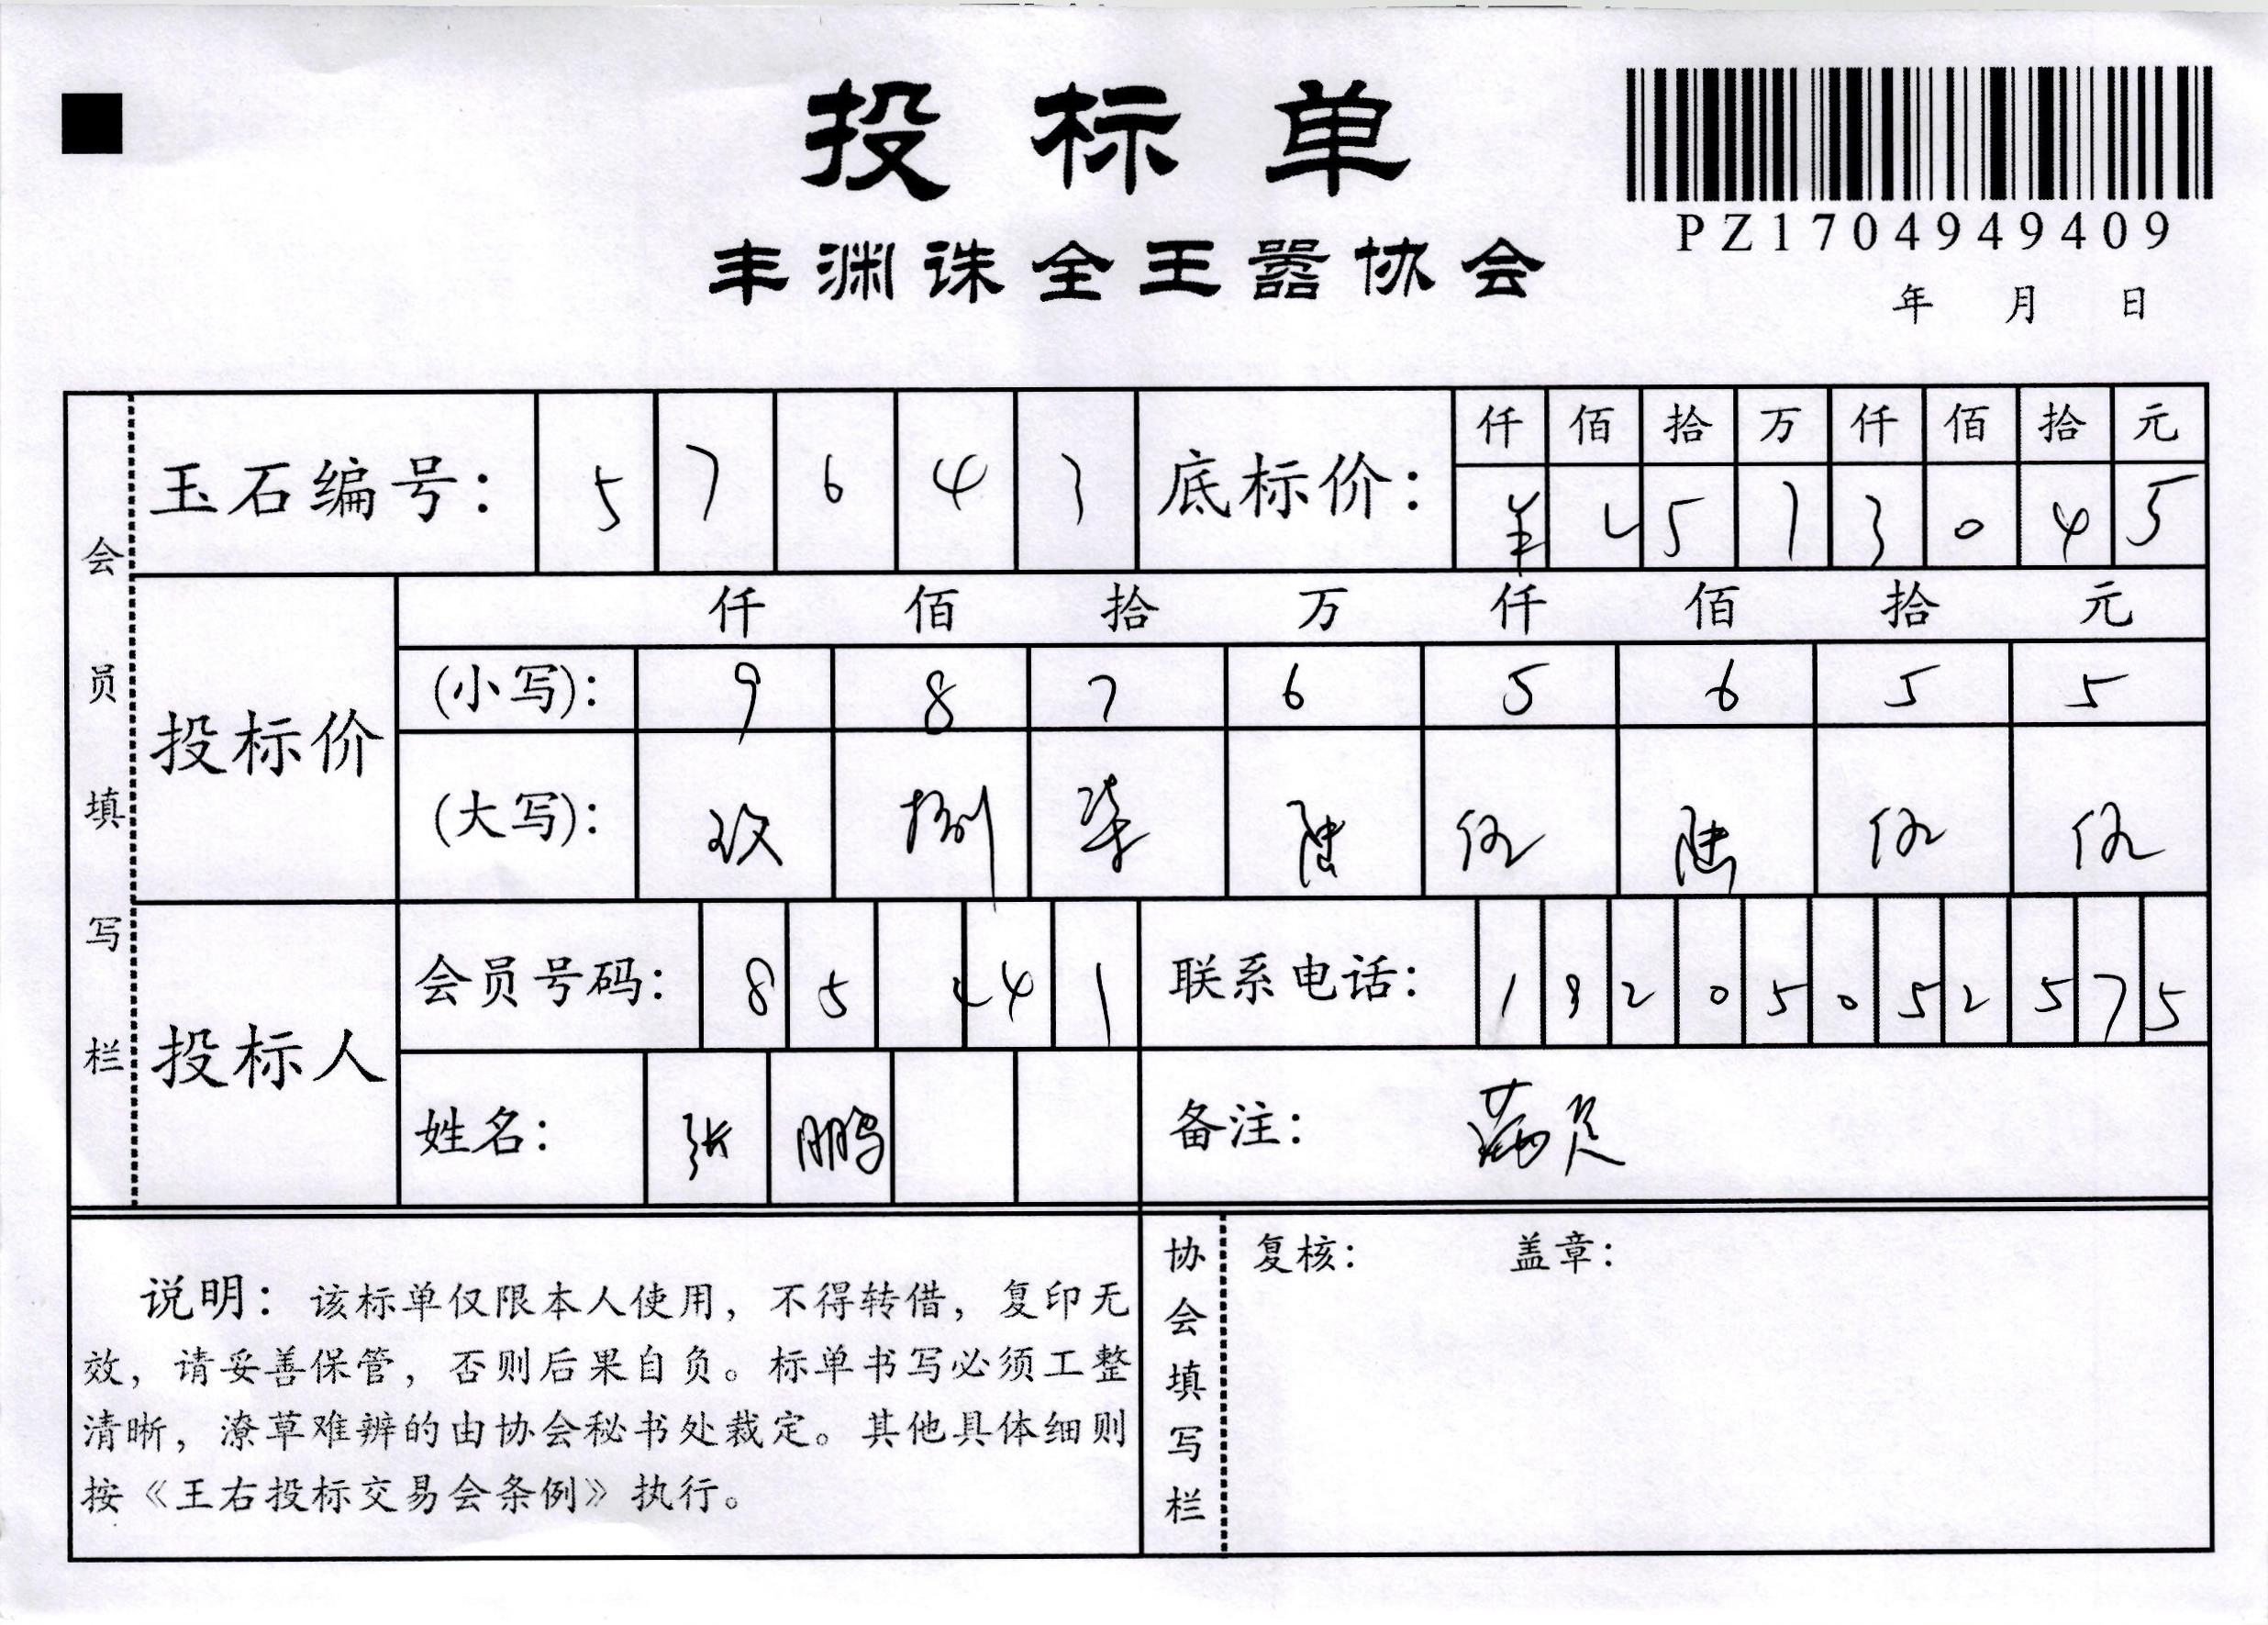 投标单
丰渊诛全王嚣协会
PZ1704949409
年 月 日
会员填写栏
玉石编号： 5 7 6 4 3
底标价： 仟 佰 拾 万 仟 佰 拾 元
5 1 3 0 4 5
投标价
仟 佰 拾 万 仟 佰 拾 元
(小写)： 9 8 7 6 5 6 5 5
(大写)： 玖 捌 柒 陆 伍 陆 伍 伍
投标人
会员号码： 8 5 4 4 1
联系电话： 1 3 2 0 5 0 5 2 5 7 5
姓名： 张 鹏
备注：
说明：该标单仅限本人使用，不得转借，复印无
效，请妥善保管，否则后果自负。标单书写必须工整
清晰，潦草难辨的由协会秘书处裁定。其他具体细则
按《王右投标交易会条例》执行。
协会填写栏
复核： 盖章：